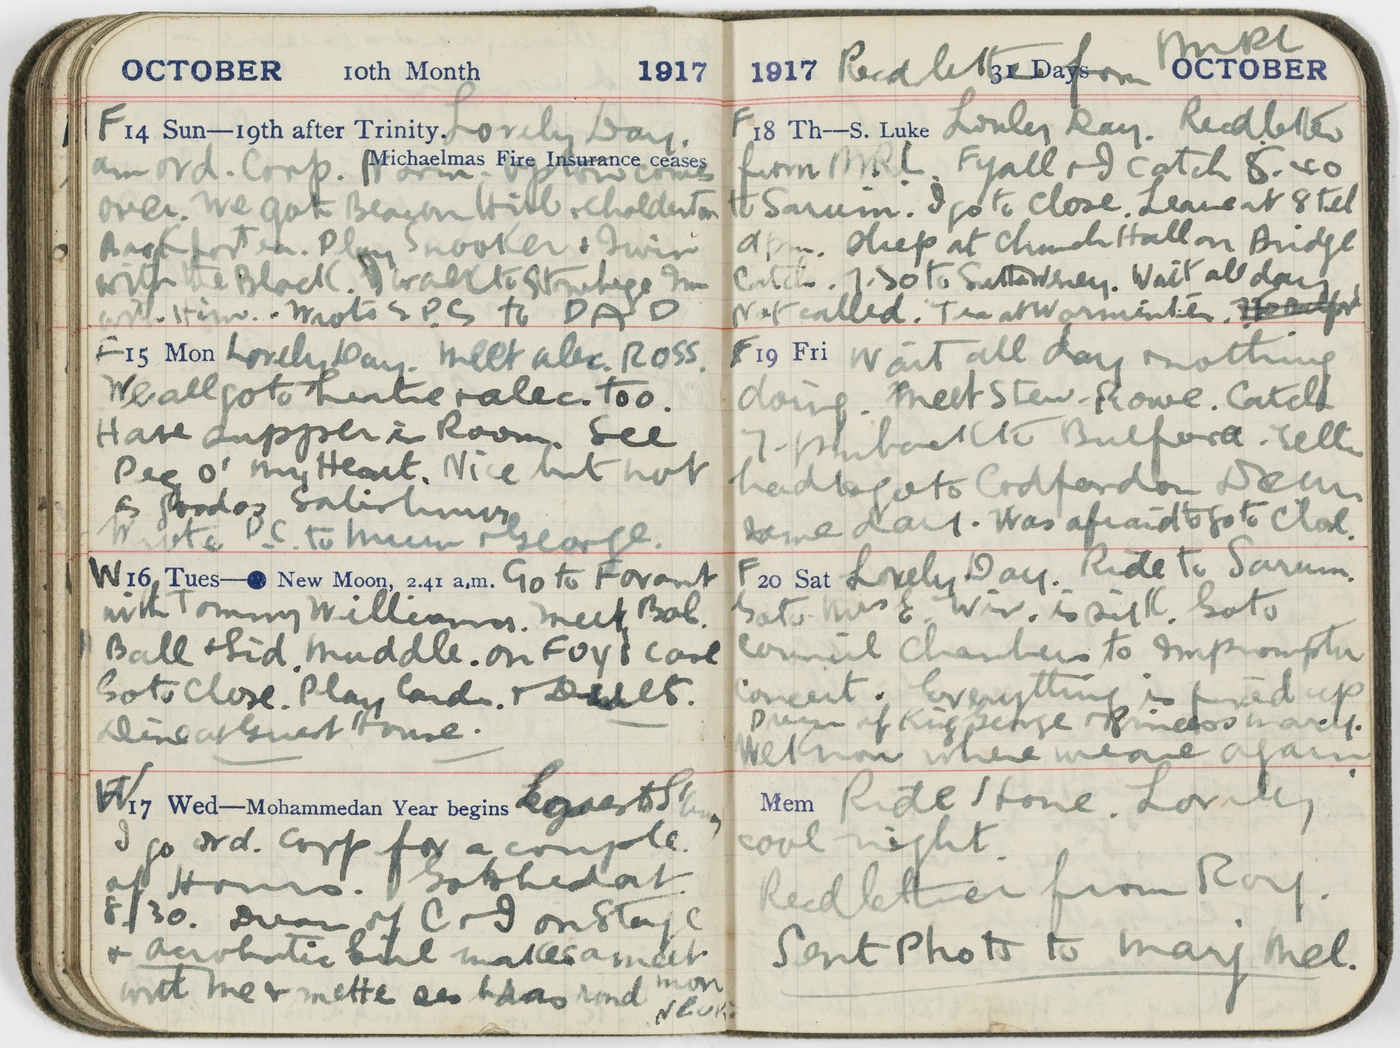 OCTOBER 10th Month 1917
F 14 Sun—19th after Trinity. Lovely Day.
Michaelmas Fire Insurance ceases
am ord. Corp. Norm. comes
over. We go to Beacon Hill & Cholderton
Back for tea. Play Snooker & I win
with the Black. I walk to Stonehenge Inn
with Him. Wrote S P.S to DAD
F 15 Mon Lovely Day. Meet alec. Ross.
We all go to theatre & alec. too.
Have supper in Room. See
Peg O' my Heart. Nice but not
as good as Salisbury
Wrote P.C. to Mum & George.
W 16 Tues—New Moon, 2.41 a.m. Go to Fovant
with Tommy Williams. meet Bob.
Ball & Sid. Muddle. on Foy's case
Go to Close. Play Cards. &
Dine at Guest House.
W 17 Wed—Mohammedan Year begins
I go ord. Corp for a couple.
of Hours. Go to bed at
8/30. Dream of C & I on Stage
& acrobatic Girl makes a meet
with me &
1917 Recd letter from MRL
31 Days OCTOBER
F 18 Th—S. Luke Lovley Day. Recd letter
from MRL. Fyall & I catch 8.40
to Sarum. I go to Close. Leave at 8 till
9 pm. Sleep at Church Hall on Bridge
Catch. 7.30 to Wait all day
Not called. Tea at Warminster.
F 19 Fri Wait all day & nothing
doing. Meet Stew. Rowe. Catch
7- pm back to Bulford. Tells
had to go to Codford on Dem
same day. Was afraid to go to Clod.
F 20 Sat Lovely Day. Ride to Sarum.
Go to Miss E. Win. is sick. Go to
Council Chambers to Impromptu
Concert. Everything is fixed up
Dream of King George & Princess Mary.
We know where we are again
Mem Ride Home. Lovely
cool night.
Recd letter from Roy.
Sent Photo to Marj Mel.